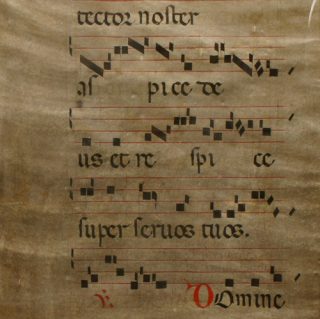 tector noster
as pi ce de
us et re spi ce
super seruos tuos.
℣. Domine